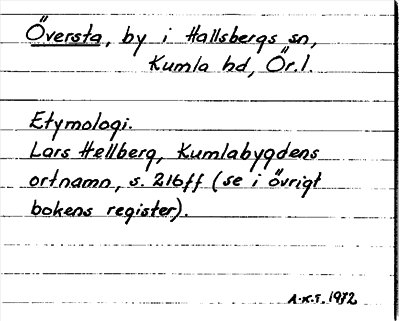 Översta, by i Hallsbergs sn,
Kumla hd, Ör.l.
Etymologi.
Lars Hellberg, Kumlabygdens
ortnamn, s. 216ff (se i övrigt
bokens register).
A-K.S. 1972